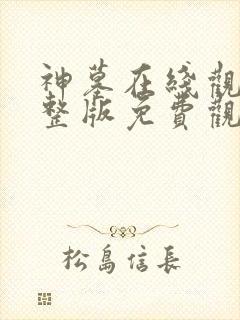 神墓在綫觀
整版免費觀
松島信長